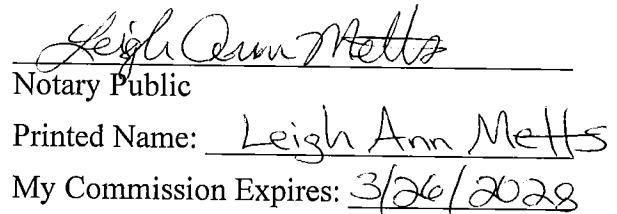 Leigh Ann Metts
Notary Public
Printed Name: Leigh Ann Metts
My Commission Expires: 3/26/2028